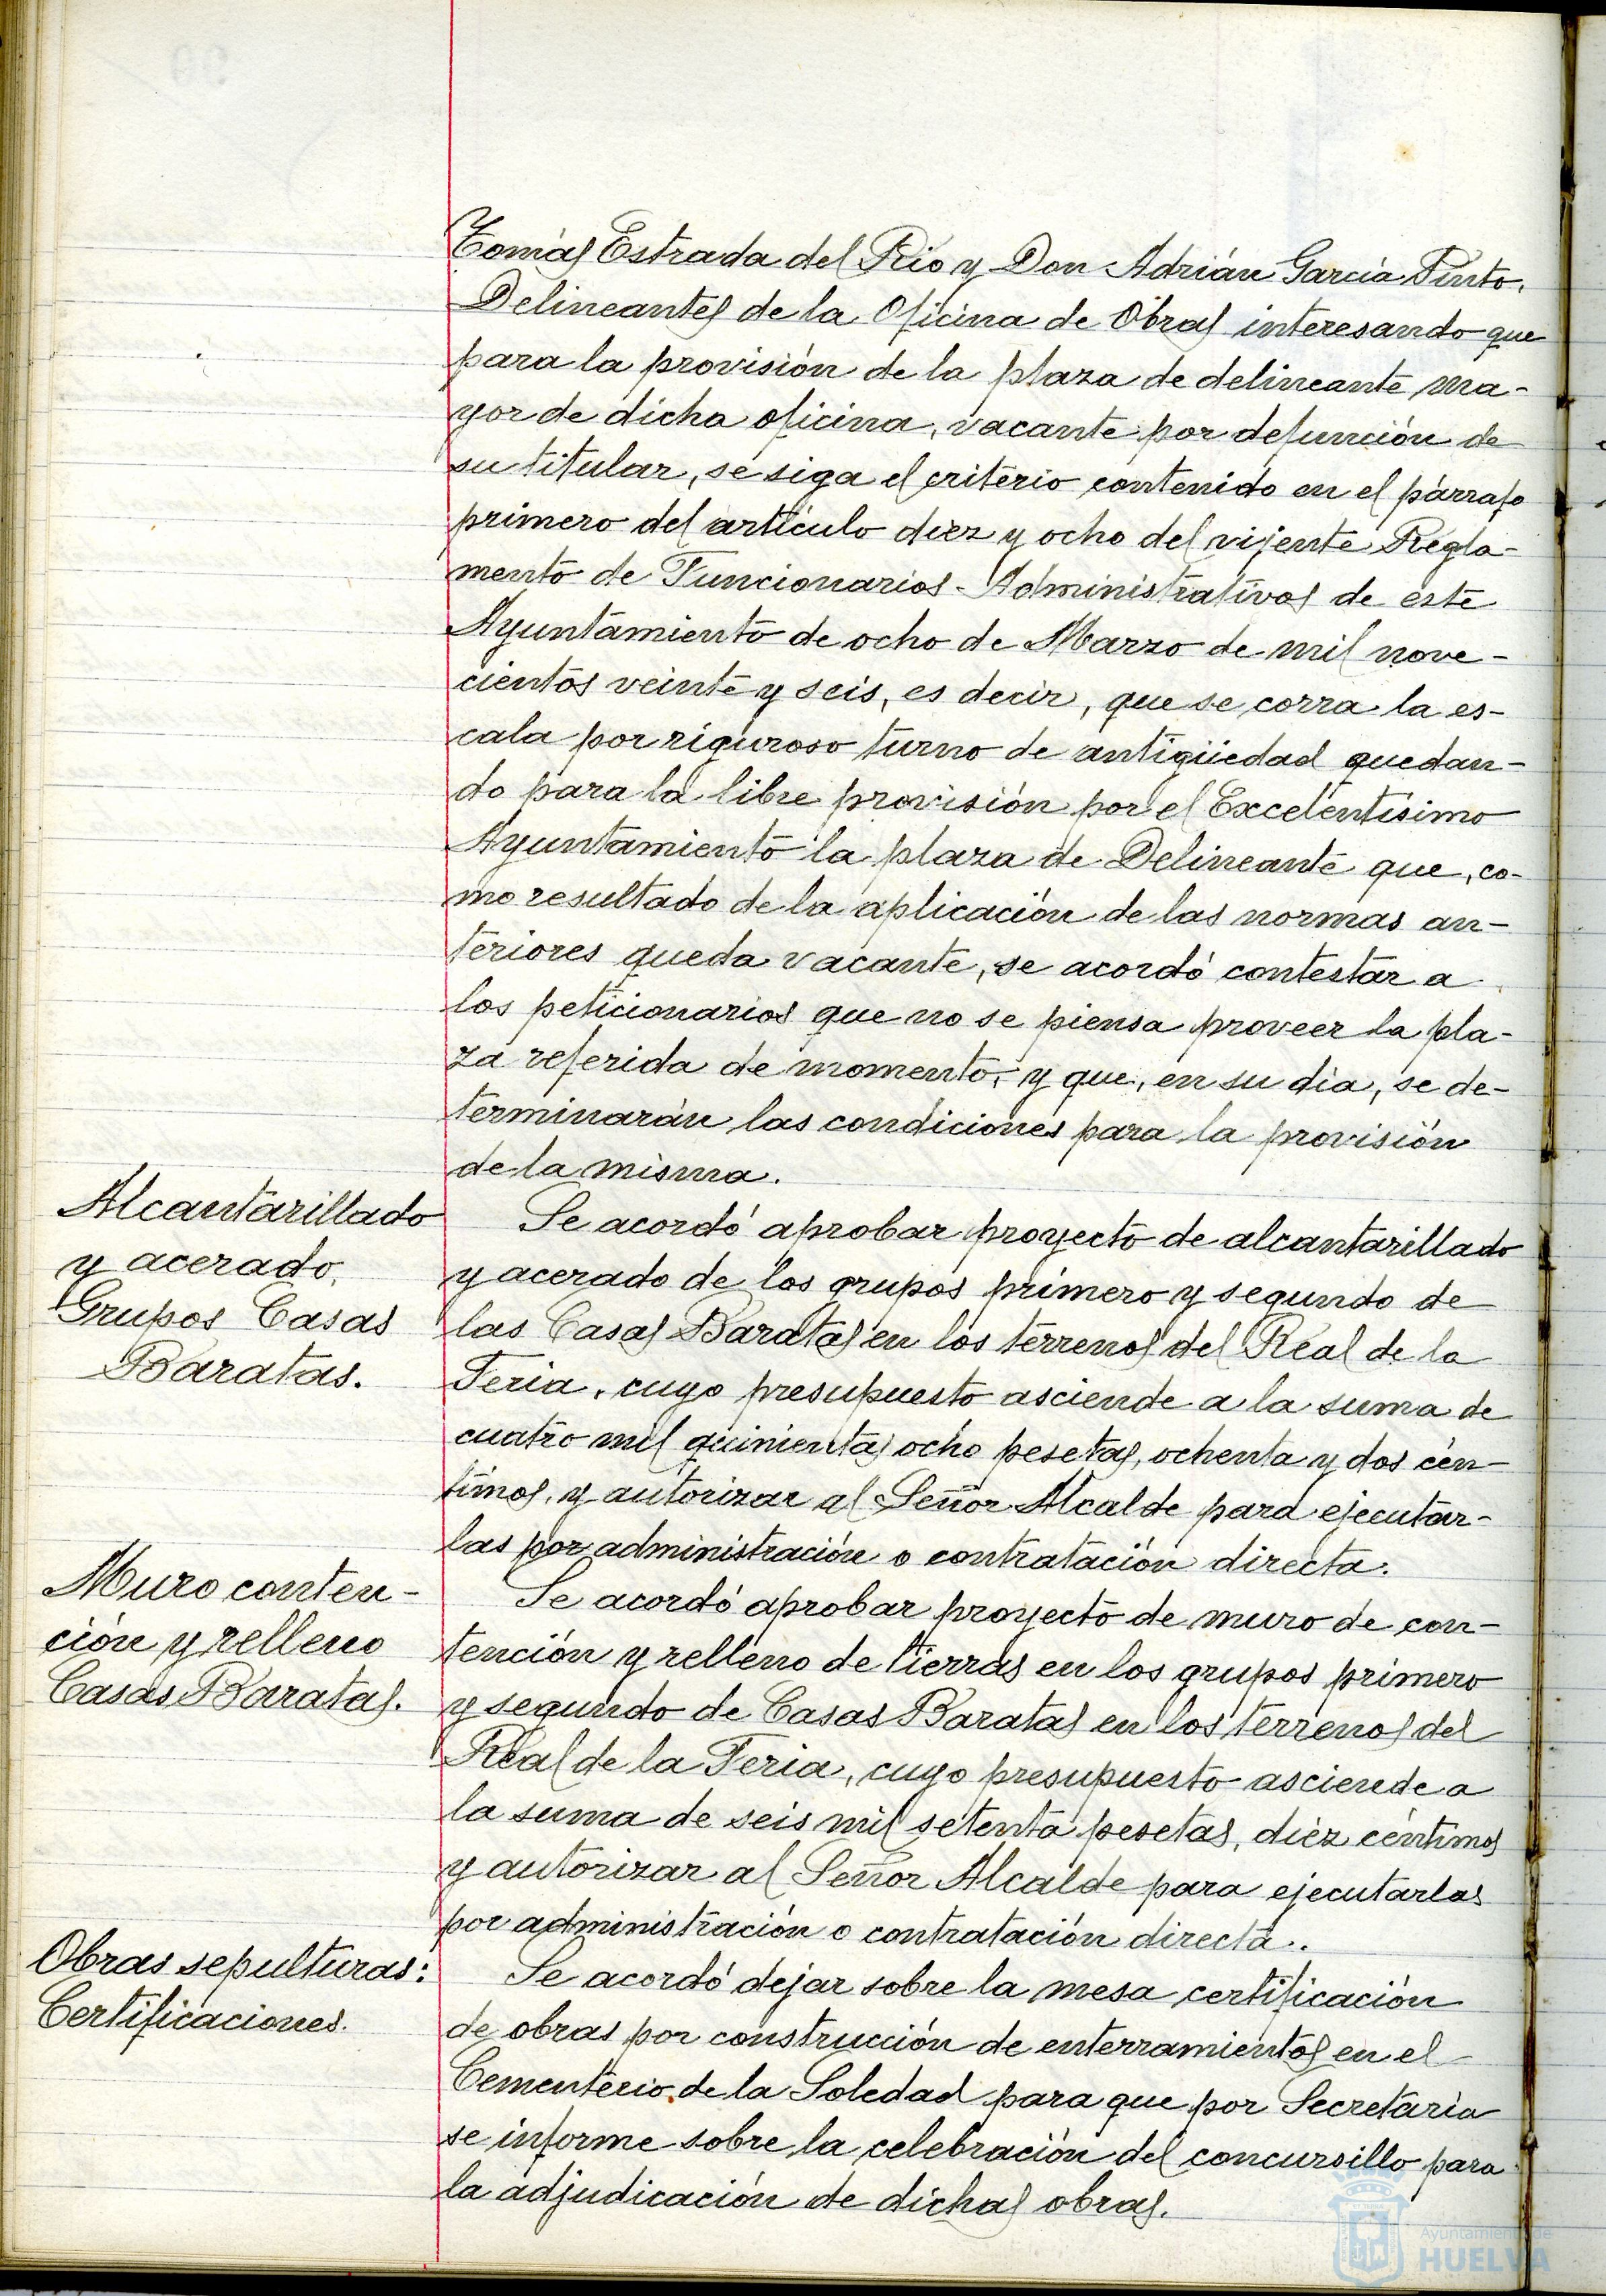 Tomás Estrada del Rio y Don Adrián García Pinto,
Delineantes de la Oficina de Obras interesando que
para la provisión de la plaza de delineante ma-
yor de dicha oficina, vacante por defunción de
su titular, se siga el criterio contenido en el párrafo
primero del artículo diez y ocho del vijente Regla-
mento de Funcionarios-Administrativos de este
Ayuntamiento de ocho de Marzo de mil nove-
cientos veinte y seis, es decir, que se corra la es-
cala por riguroso turno de antigüedad quedan-
do para la libre provisión por el Excelentísimo
Ayuntamiento la plaza de Delineante que, co-
mo resultado de la aplicación de las normas an-
teriores queda vacante, se acordó contestar a
los peticionarios que no se piensa proveer la pla-
za referida de momento, y que, en su día, se de-
terminarán las condiciones para la provisión
de la misma.
Alcantarillado
y acerado.
Grupos Casas
Baratas.
Se acordó aprobar proyecto de alcantarillado
y acerado de los grupos primero y segundo de
las Casas Baratas en los terrenos del Real de la
Feria, cuyo presupuesto asciende a la suma de
cuatro mil quinientas ocho pesetas, ochenta y dos cén-
timos, y autorizar al Señor Alcalde para ejecutar-
las por administración o contratación directa.
Muro conten-
ción y relleno
Casas Baratas.
Se acordó aprobar proyecto de muro de con-
tención y relleno de tierras en los grupos primero
y segundo de Casas Baratas en los terrenos del
Real de la Feria, cuyo presupuesto asciende a
la suma de seis mil setenta pesetas, diez céntimos
y autorizar al Señor Alcalde para ejecutarlas
por administración o contratación directa.
Obras sepulturas:
Certificaciones.
Se acordó dejar sobre la mesa certificación
de obras por construcción de enterramientos en el
Cementerio de la Soledad para que por Secretaría
se informe sobre la celebración del concursillo para
la adjudicación de dichas obras.
Ayuntamiento de
HUELVA